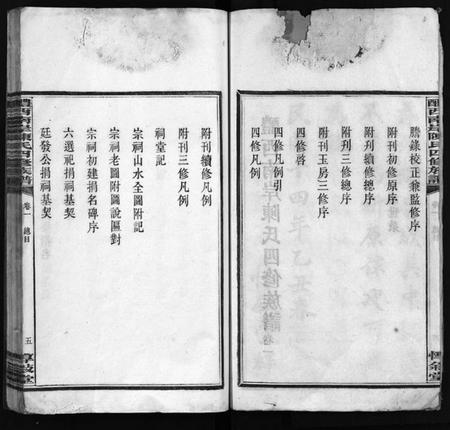 謄錄校正兼監修序
附刊初修原序
附刊續修總序
附刋三修總序
附刊玉房三修序
四修啓
四修凡例引
四修凡例
附刊續修凡例
附刊三修凡例
祠堂記
宗祠山水全圖附記
宗祠老圖附圖說區對
宗祠初建捐名碑序
六選祀捐祠基契
廷發公捐祠基契
陳氏四修族譜
卷一
總目
五